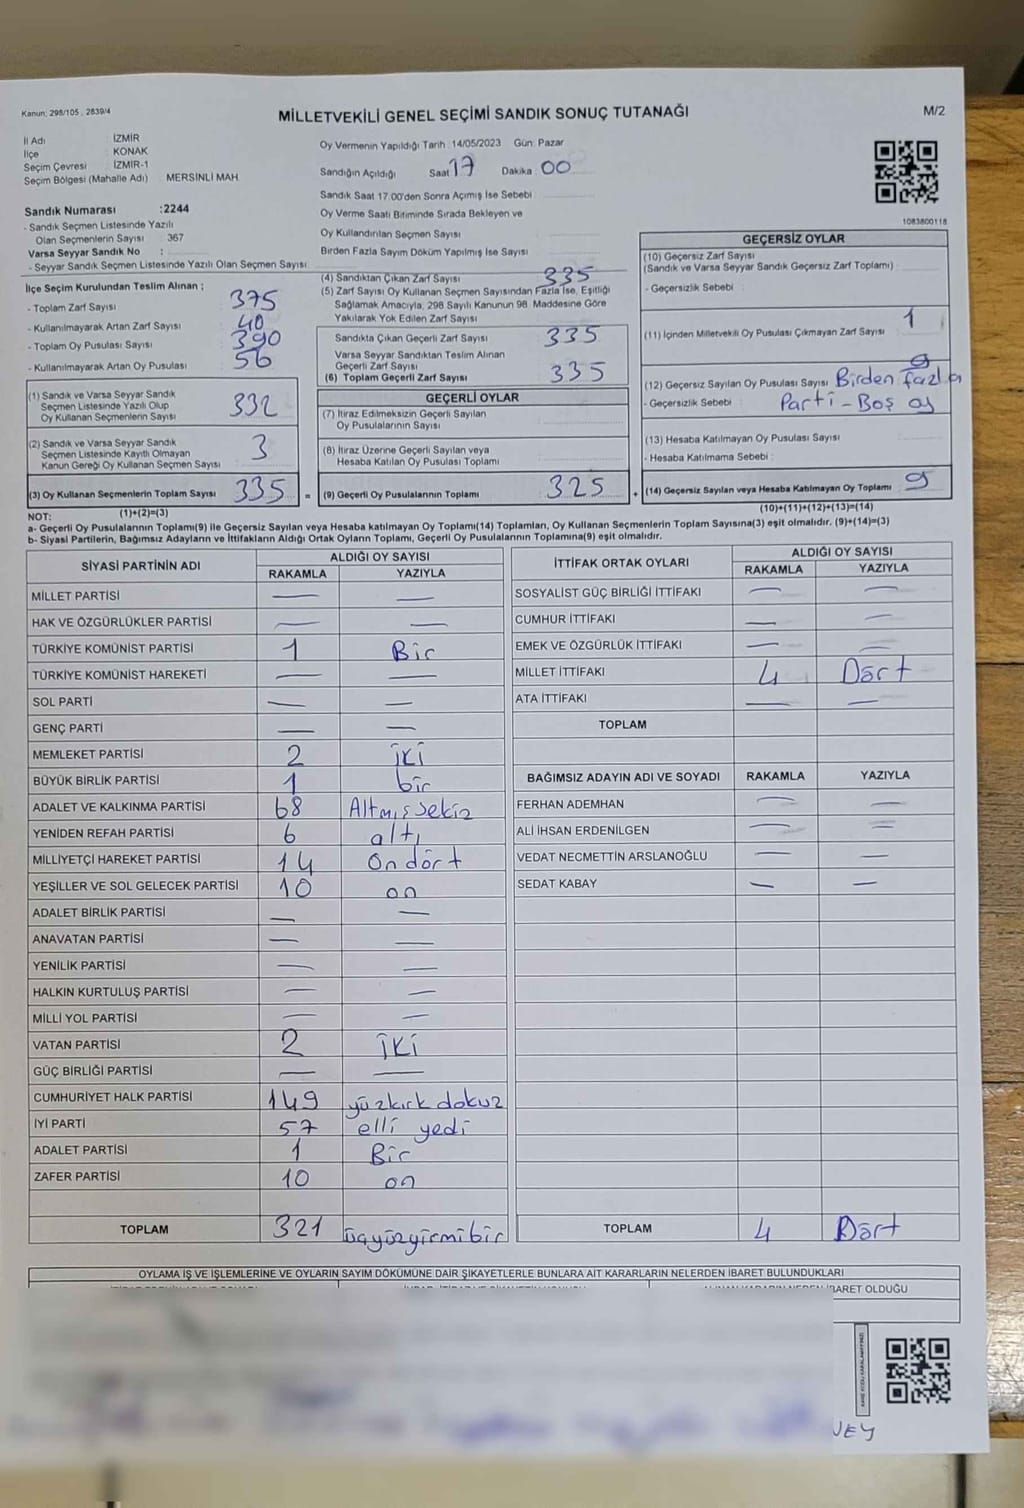 Kanun: 298/105 , 2839/4
MİLLETVEKİLİ GENEL SEÇİMİ SANDIK SONUÇ TUTANAĞI
M/2
İl Adı : İZMİR
İlçe : KONAK
Seçim Çevresi : İZMİR-1
Seçim Bölgesi (Mahalle Adı) : MERSİNLİ MAH
Sandık Numarası :2244
- Sandık Seçmen Listesinde Yazılı
Olan Seçmenlerin Sayısı : 367
Varsa Seyyar Sandık No :
- Seyyar Sandık Seçmen Listesinde Yazılı Olan Seçmen Sayısı:
Oy Vermenin Yapıldığı Tarih :14/05/2023 Gün: Pazar
Sandığın Açıldığı Saat 17 Dakika : 00
Sandık Saat 17.00'den Sonra Açımış İse Sebebi :
Oy Verme Saati Bitiminde Sırada Bekleyen ve
Oy Kullandırılan Seçmen Sayısı :
Birden Fazla Sayım Döküm Yapılmış İse Sayısı :
1083800118
İlçe Seçim Kurulundan Teslim Alınan ;
- Toplam Zarf Sayısı : 375
- Kullanılmayarak Artan Zarf Sayısı : 40
- Toplam Oy Pusulası Sayısı : 390
- Kullanılmayarak Artan Oy Pusulası : 56
(1) Sandık ve Varsa Seyyar Sandık
Seçmen Listesinde Yazılı Olup
Oy Kullanan Seçmenlerin Sayısı : 332
(2) Sandık ve Varsa Seyyar Sandık
Seçmen Listesinde Kayıtlı Olmayan
Kanun Gereği Oy Kullanan Seçmen Sayısı : 3
(3) Oy Kullanan Seçmenlerin Toplam Sayısı : 335
(1)+(2)=(3)
(4) Sandıktan Çıkan Zarf Sayısı : 335
(5) Zarf Sayısı Oy Kullanan Seçmen Sayısından Fazla İse, Eşitliği
Sağlamak Amacıyla, 298 Sayılı Kanunun 98. Maddesine Göre
Yakılarak Yok Edilen Zarf Sayısı :
Sandıkta Çıkan Geçerli Zarf Sayısı : 335
Varsa Seyyar Sandıktan Teslim Alınan
Geçerli Zarf Sayısı :
(6) Toplam Geçerli Zarf Sayısı : 335
GEÇERLİ OYLAR
(7) İtiraz Edilmeksizin Geçerli Sayılan
Oy Pusulalarının Sayısı :
(8) İtiraz Üzerine Geçerli Sayılan veya
Hesaba Katılan Oy Pusulası Toplamı :
= (9) Geçerli Oy Pusulalarının Toplamı : 325
GEÇERSİZ OYLAR
(10) Geçersiz Zarf Sayısı :
(Sandık ve Varsa Seyyar Sandık Geçersiz Zarf Toplamı) :
- Geçersizlik Sebebi :
(11) İçinden Milletvekili Oy Pusulası Çıkmayan Zarf Sayısı : 1
(12) Geçersiz Sayılan Oy Pusulası Sayısı : 9 Birden fazla
- Geçersizlik Sebebi : Parti - Boş oy
(13) Hesaba Katılmayan Oy Pusulası Sayısı :
- Hesaba Katılmama Sebebi :
+ (14) Geçersiz Sayılan veya Hesaba Katılmayan Oy Toplamı : 9
(10)+(11)+(12)+(13)=(14)
NOT:
a- Geçerli Oy Pusulalarının Toplamı(9) ile Geçersiz Sayılan veya Hesaba katılmayan Oy Toplamı(14) Toplamları, Oy Kullanan Seçmenlerin Toplam Sayısına(3) eşit olmalıdır. (9)+(14)=(3)
b- Siyasi Partilerin, Bağımsız Adayların ve İttifakların Aldığı Ortak Oyların Toplamı, Geçerli Oy Pusulalarının Toplamına(9) eşit olmalıdır.
SİYASİ PARTİNİN ADI
ALDIĞI OY SAYISI
RAKAMLA YAZIYLA
MİLLET PARTİSİ — —
HAK VE ÖZGÜRLÜKLER PARTİSİ — —
TÜRKİYE KOMÜNİST PARTİSİ 1 Bir
TÜRKİYE KOMÜNİST HAREKETİ — —
SOL PARTİ — —
GENÇ PARTİ — —
MEMLEKET PARTİSİ 2 iki
BÜYÜK BİRLİK PARTİSİ 1 bir
ADALET VE KALKINMA PARTİSİ 68 Altmış sekiz
YENİDEN REFAH PARTİSİ 6 altı
MİLLİYETÇİ HAREKET PARTİSİ 14 On dört
YEŞİLLER VE SOL GELECEK PARTİSİ 10 on
ADALET BİRLİK PARTİSİ — —
ANAVATAN PARTİSİ — —
YENİLİK PARTİSİ — —
HALKIN KURTULUŞ PARTİSİ — —
MİLLİ YOL PARTİSİ — —
VATAN PARTİSİ 2 iki
GÜÇ BİRLİĞİ PARTİSİ — —
CUMHURİYET HALK PARTİSİ 149 yüzkırk dokuz
İYİ PARTİ 57 elli yedi
ADALET PARTİSİ 1 Bir
ZAFER PARTİSİ 10 on
TOPLAM 321 üçyüzyirmi bir
İTTİFAK ORTAK OYLARI
ALDIĞI OY SAYISI
RAKAMLA YAZIYLA
SOSYALİST GÜÇ BİRLİĞİ İTTİFAKI — —
CUMHUR İTTİFAKI — —
EMEK VE ÖZGÜRLÜK İTTİFAKI — —
MİLLET İTTİFAKI 4 Dört
ATA İTTİFAKI — —
TOPLAM
BAĞIMSIZ ADAYIN ADI VE SOYADI RAKAMLA YAZIYLA
FERHAN ADEMHAN — —
ALİ İHSAN ERDENİLGEN — —
VEDAT NECMETTİN ARSLANOĞLU — —
SEDAT KABAY — —
TOPLAM 4 Dört
OYLAMA İŞ VE İŞLEMLERİNE VE OYLARIN SAYIM DÖKÜMÜNE DAİR ŞİKAYETLERLE BUNLARA AİT KARARLARIN NELERDEN İBARET BULUNDUKLARI
İBARET OLDUĞU